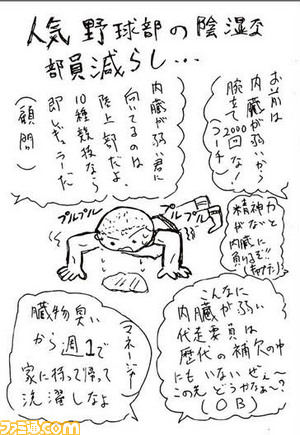 人気野球部の陰湿な
部員減らし…
お前は
内臓が弱いから
腕立て2000回な!
(コーチ)
内臓が弱い君に
向いてるのは
陸上部だよ。
10種競技なら
即レギュラーだ
(顧問)
プルプル
プルプル
精神力
がないと
内臓に
負けるぞ!!
こんなに
内臓が弱い
代走要員は
歴代の補欠の中
にもいないぜぇ〜
この先どうかなぁ〜?
(OB)
(マネージャー)
臓物臭い
から週1で
家に持って帰って
洗濯しなよ
ファミ通.com